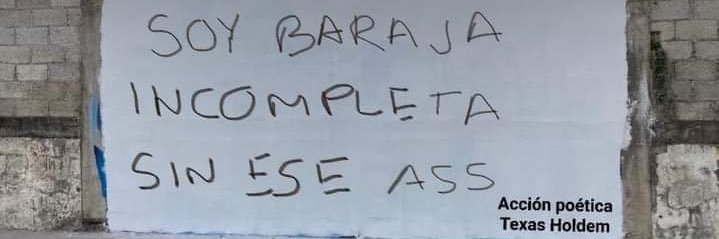 SOY BARAJA
INCOMPLETA
SIN ESE ASS
Acción poética
Texas Holdem